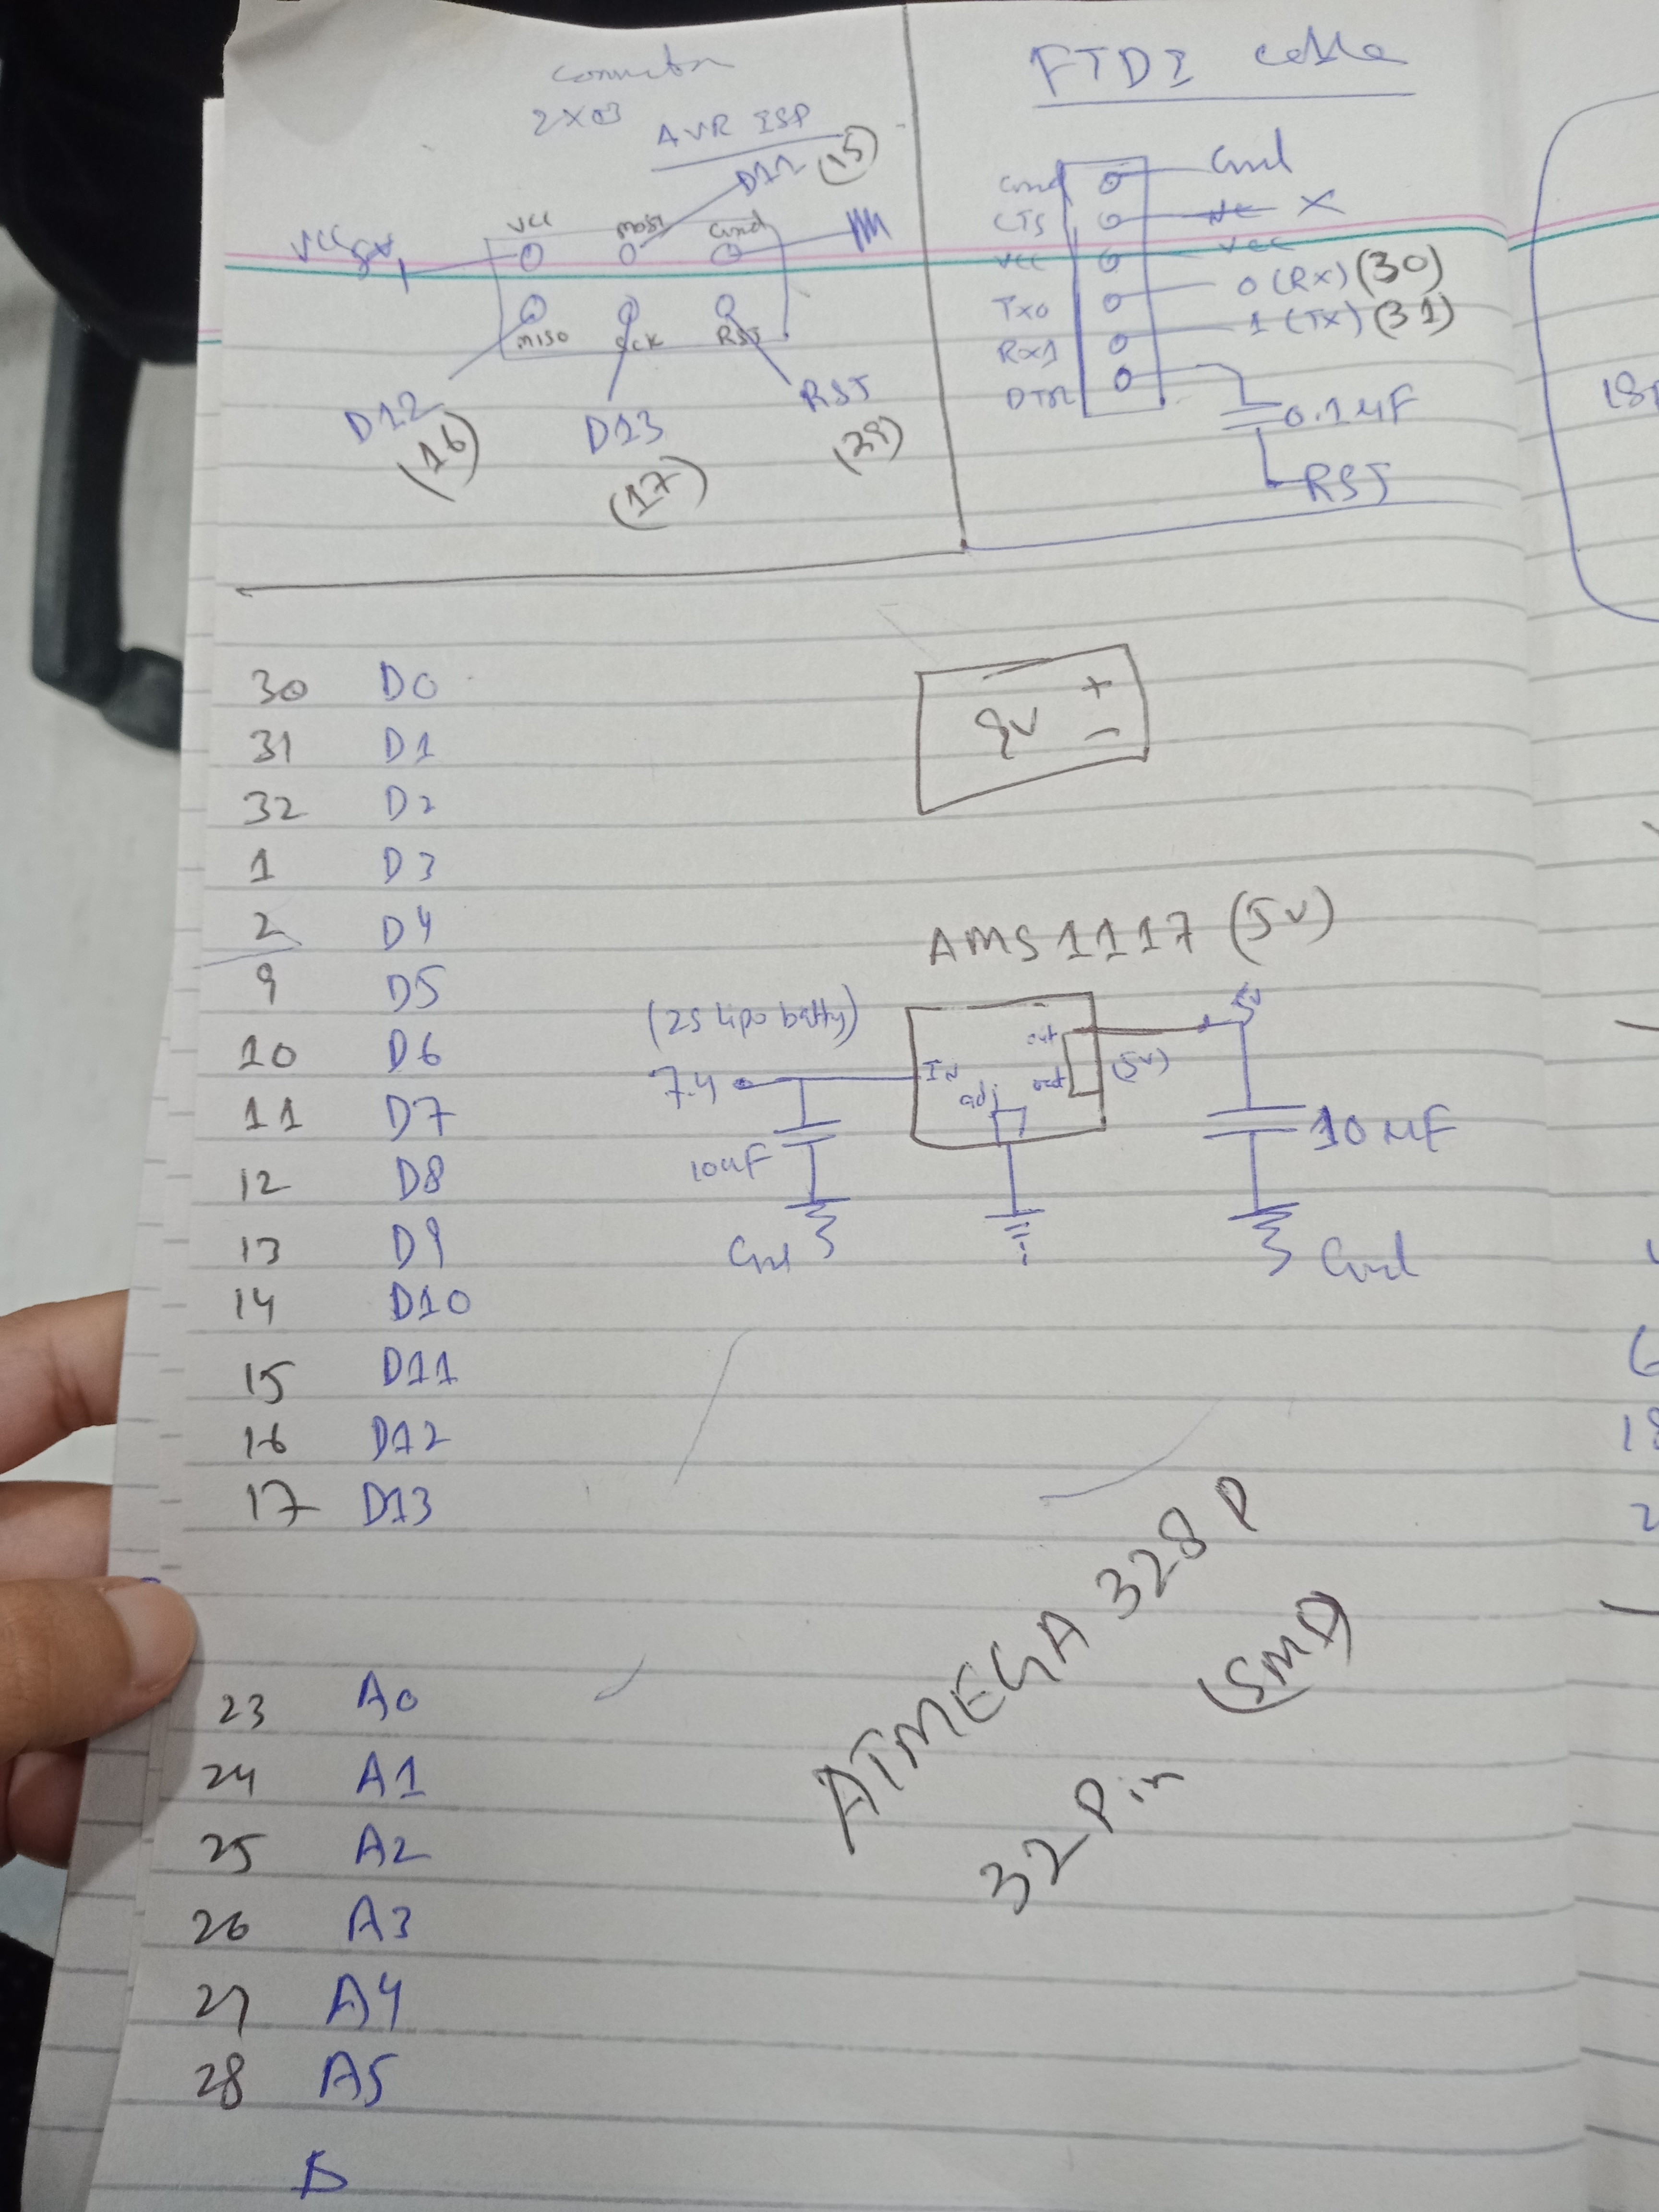 Connector
2X03
AVR ISP
D11 (15)
VCC 5V
VCC MOSI Gnd
MISO SCK RST
D12
(16)
D13
(17)
RST
(29)
FTDI cable
Gnd Gnd
CTS X
VCC VCC
TX0 0 (RX) (30)
RX1 1 (TX) (31)
DTR
0.1uF
RST
30 D0
31 D1
32 D2
1 D3
2 D4
9 D5
10 D6
11 D7
12 D8
13 D9
14 D10
15 D11
16 D12
17 D13
9V + -
AMS1117 (5V)
(2S lipo batty)
7.4
IN out
out
adj
(5V)
5V
10uF
10uF
Gnd
Gnd
ATMEGA 328P
(SMD)
32 Pin
23 A0
24 A1
25 A2
26 A3
27 A4
28 A5